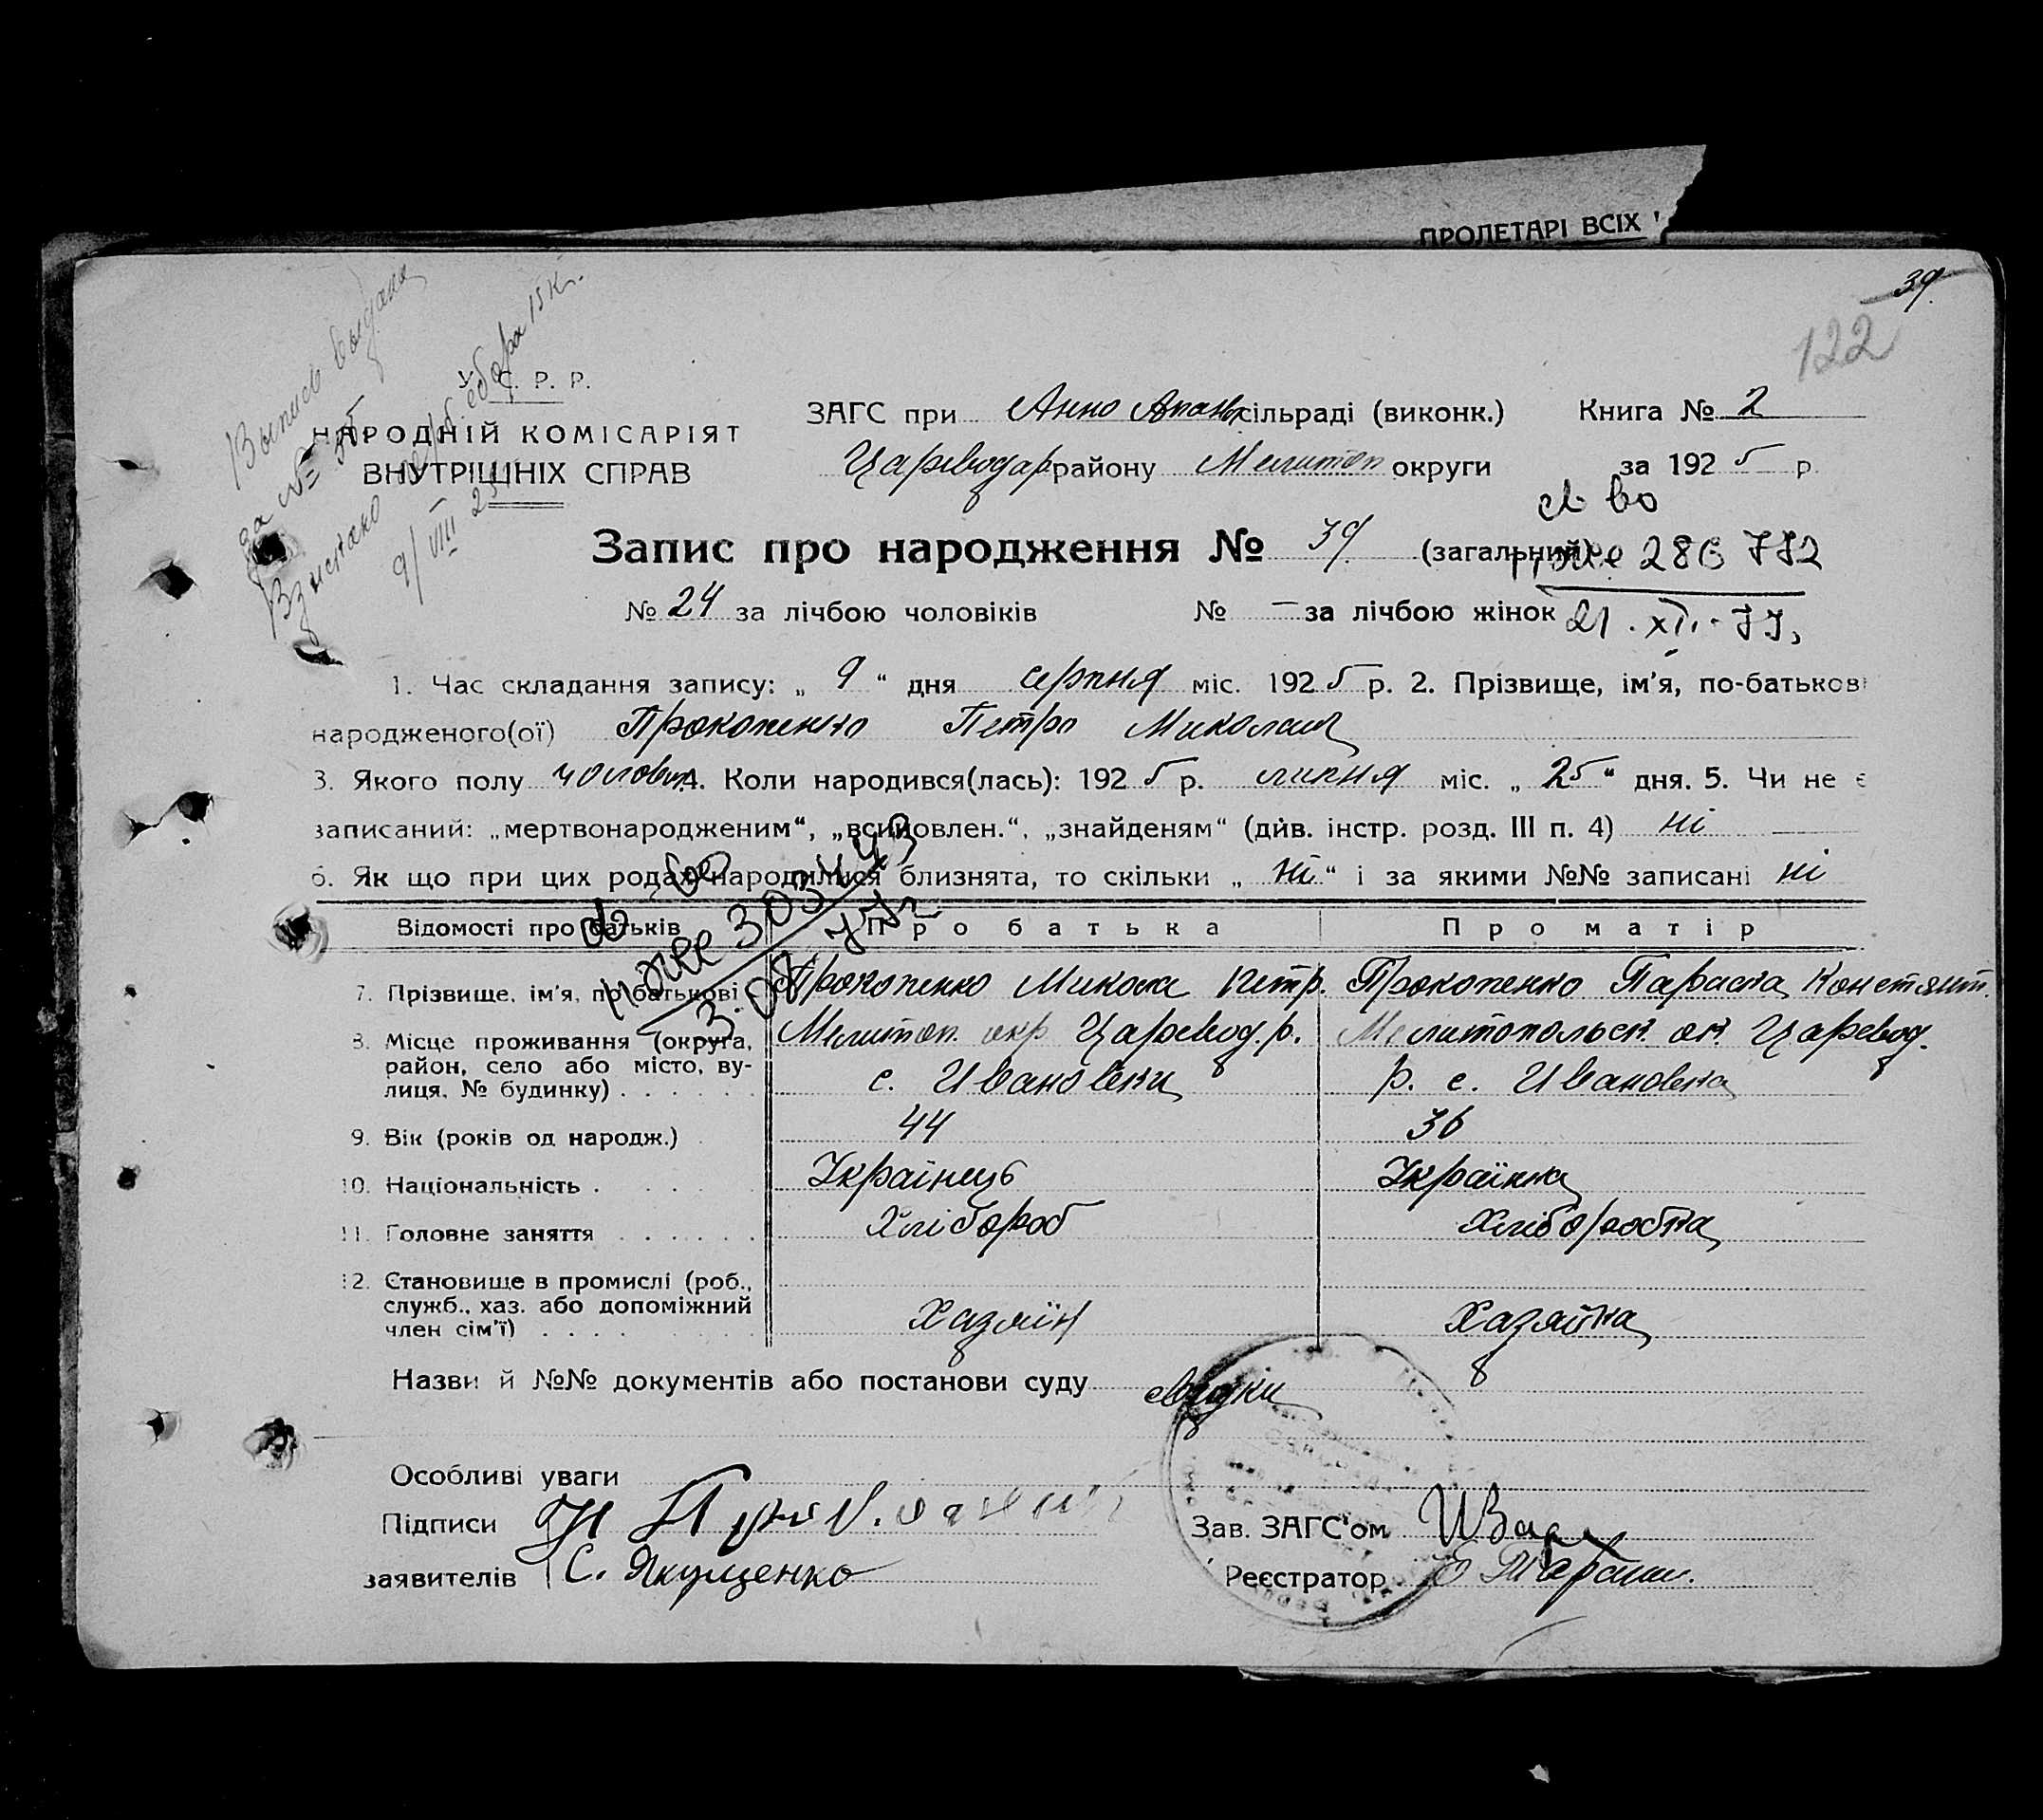 ПРОЛЕТАРІ ВСІХ
39
122
Выпись выдана
за №
Взыскано герб. сбора 15 к.
9/VIII 25
У. С. Р. Р.
НАРОДНІЙ КОМІСАРІЯТ
ВНУТРІШНІХ СПРАВ
ЗАГС при Анно сільраді (виконк.) Книга № 2
Цареводар району Мелитоп округи за 1925 р.
св во
286 772
21.XII.77.
Запис про народження № 39 (загальний)
№ 24 за лічбою чоловіків № — за лічбою жінок
1. Час складання запису: „ 9 “ дня серпня міс. 1925 р. 2. Прізвище, ім'я, по-батькові
народженого(ої) Прокопенко Петро Миколаїв
3. Якого полу чоловіч. 4. Коли народився(лась): 1925 р. липня міс. „ 25 “ дня. 5. Чи не є
записаний: „мертвонародженим“, „всиновлен.“, „знайденям“ (див. інстр. розд. III п. 4) ні
6. Як що при цих родах народилися близнята, то скільки „ ні “ і за якими №№ записані ні
св во
303443
Відомості про батьків Про батька Про матір
7. Прізвище, ім'я, по батькові Прокопенко Микола Петр. Прокопенко Параска Констянт.
8. Місце проживання (округа, Мелитоп. окр Царевод. р. Мелитопольск. ок. Царевод.
район, село або місто, ву- с. Ивановки р. с. Ивановка
лиця, № будинку)
9. Вік (років од народж.) 44 36
10. Національність Українець Українка
11. Головне заняття Хлібороб Хліборобка
12. Становище в промислі (роб.,
служб., хаз. або допоміжний
член сім'ї) Хазяїн Хазяйка
Назви й №№ документів або постанови суду
Особливі уваги
Підписи Зав. ЗАГС'ом
заявителів С. Якущенко Реєстратор